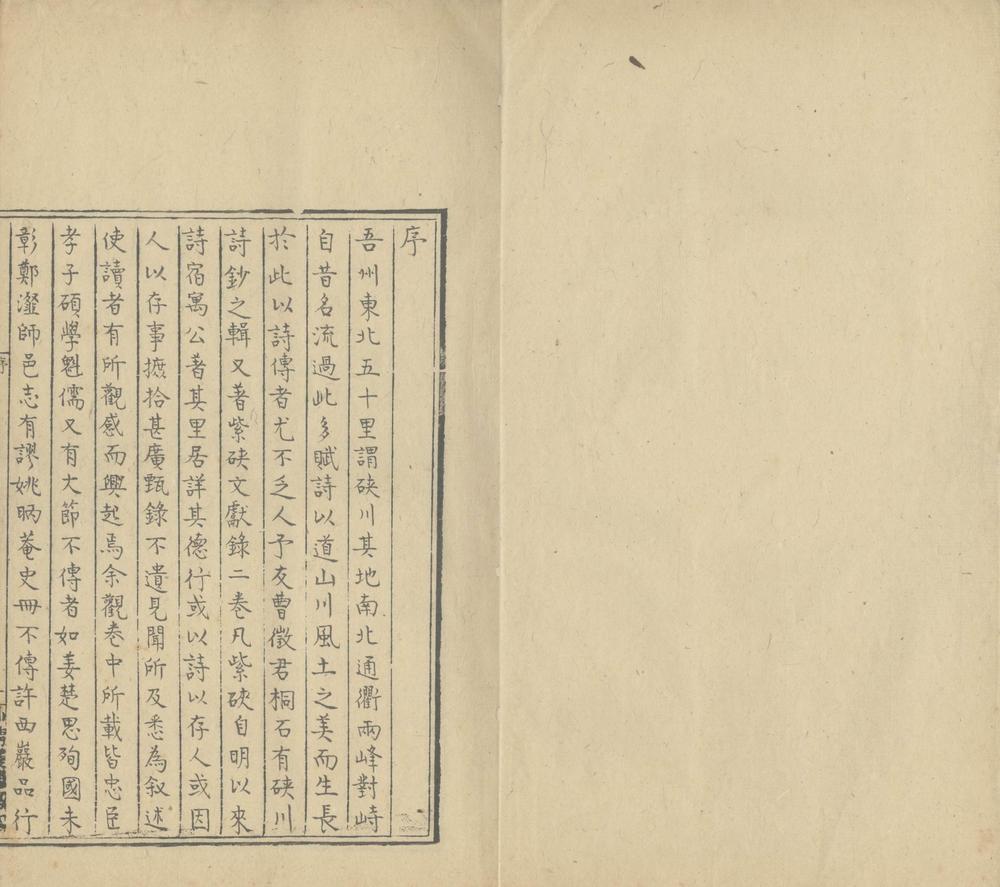 序
吾州東北五十里謂硤川其地南北通衢兩峰對峙
自昔名流過此多賦詩以道山川風土之美而生長
於此以詩傳者尤不乏人予友曹徵君桐石有硤川
詩鈔之輯又著紫硤文獻錄二卷凡紫硤自明以來
詩宿寓公著其里居詳其德行或以詩以存人或因
人以存事摭拾甚廣甄錄不遺見聞所及悉為叙述
使讀者有所觀感而興起焉余觀卷中所載皆忠臣
孝子碩學魁儒又有大節不傳者如姜楚思殉國未
彰鄭瀣師邑志有謬姚晒菴史冊不傳許西巖品行
序